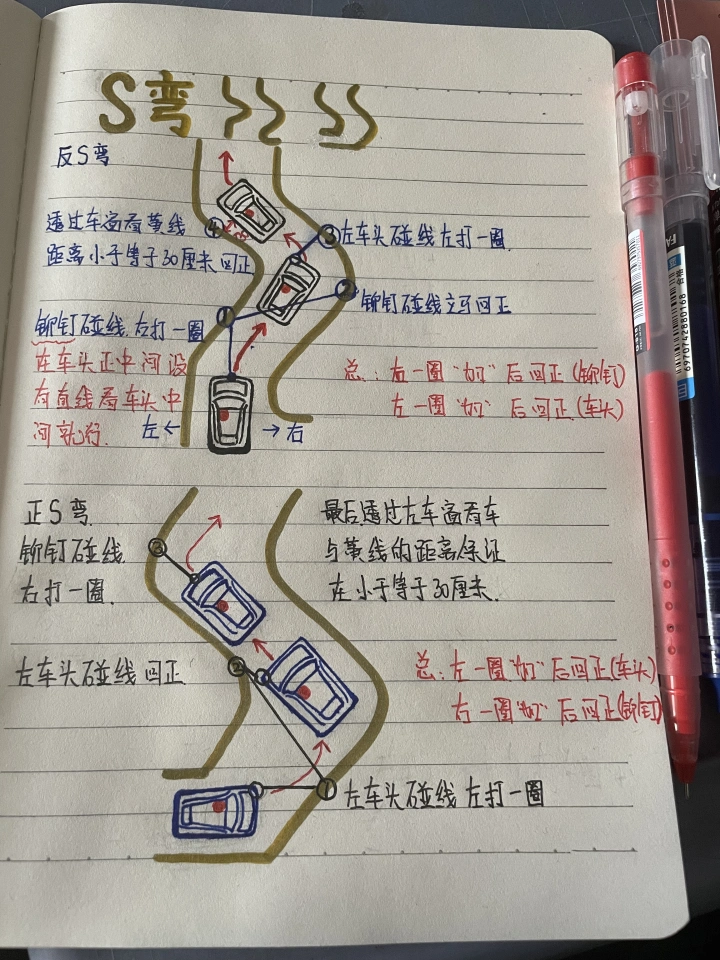 S弯
反S弯
透过车窗看黄线
距离小于等于30厘米回正
④
③左车头碰线左打一圈.
②铆钉碰线立马回正
①
铆钉碰线.右打一圈
在车头正中间没
有直线看车头中
间就行.
左← →右
总: 右一圈"加"后回正(铆钉)
左一圈"加"后回正.(车头)
正S弯.
铆钉碰线
右打一圈.
③
最后透过左车窗看车
与黄线的距离保证
在小于等于30厘米.
左车头碰线回正
②
总: 左一圈"加"后回正(车头)
右一圈"加"后回正(铆钉)
①左车头碰线左打一圈
6970742880168